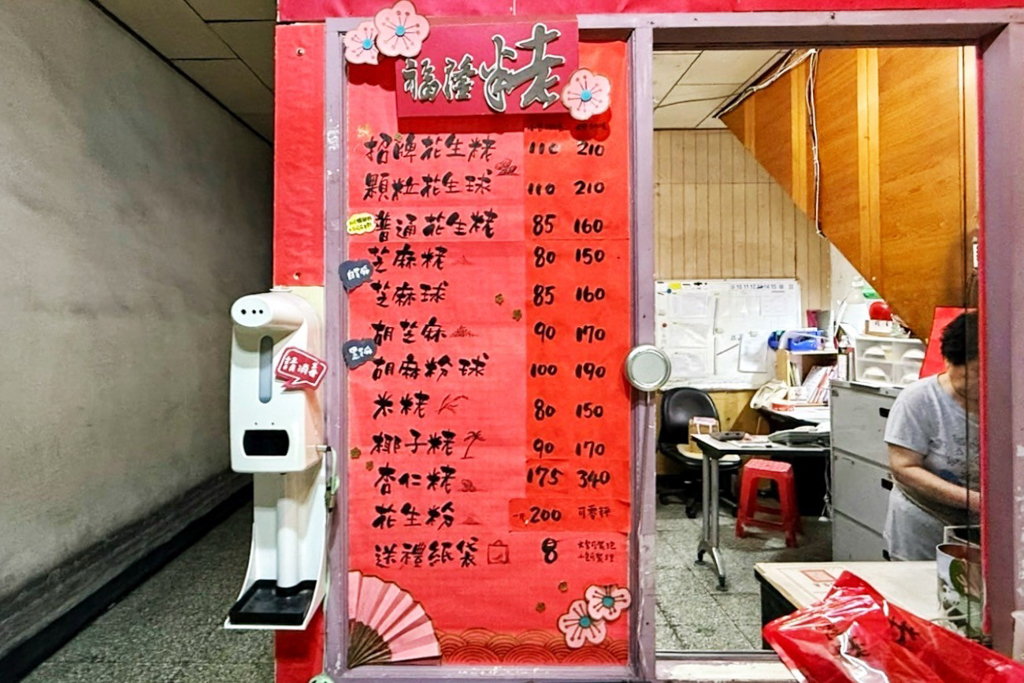 福隆粩
招牌花生粩 110 210
顆粒花生球 110 210
普通花生粩 85 160
芝麻粩 80 150
芝麻球 85 160
胡芝麻 90 170
胡麻粉球 100 190
米粩 80 150
椰子粩 90 170
杏仁粩 175 340
花生粉 200
送禮紙袋 8
請消毒